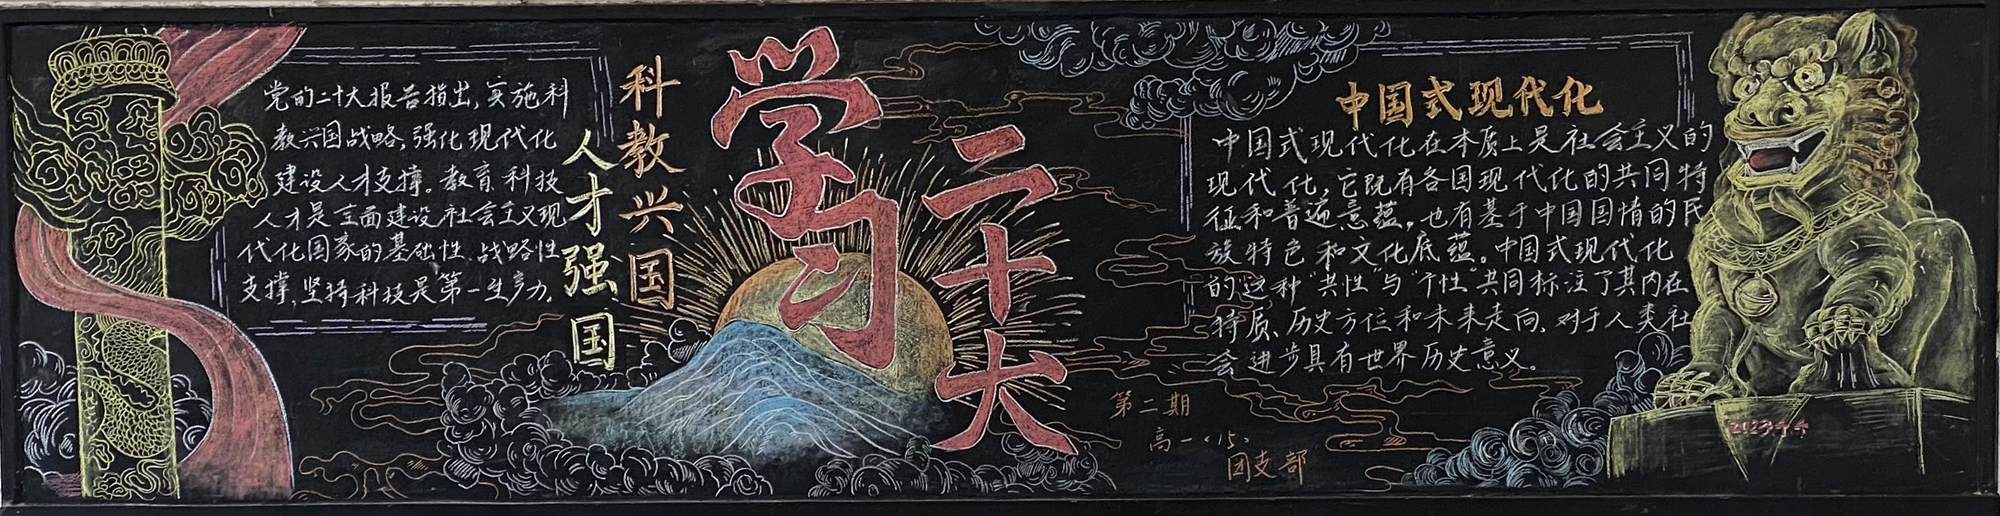 党的二十大报告指出,实施科
教兴国战略,强化现代化
建设人才支撑。教育科技
人才是全面建设社会主义现
代化国家的基础性、战略性
支撑,坚持科技是第一生产力.
科教兴国
人才强国
学习
二十大
中国式现代化
中国式现代化在本质上是社会主义的
现代化,它既有各国现代化的共同特
征和普遍意蕴,也有基于中国国情的民
族特色和文化底蕴。中国式现代化
的这种“共性”与“个性”共同标注了其内在
特质、历史方位和未来走向,对于人类社
会进步具有世界历史意义。
第二期
高一(15)
团支部